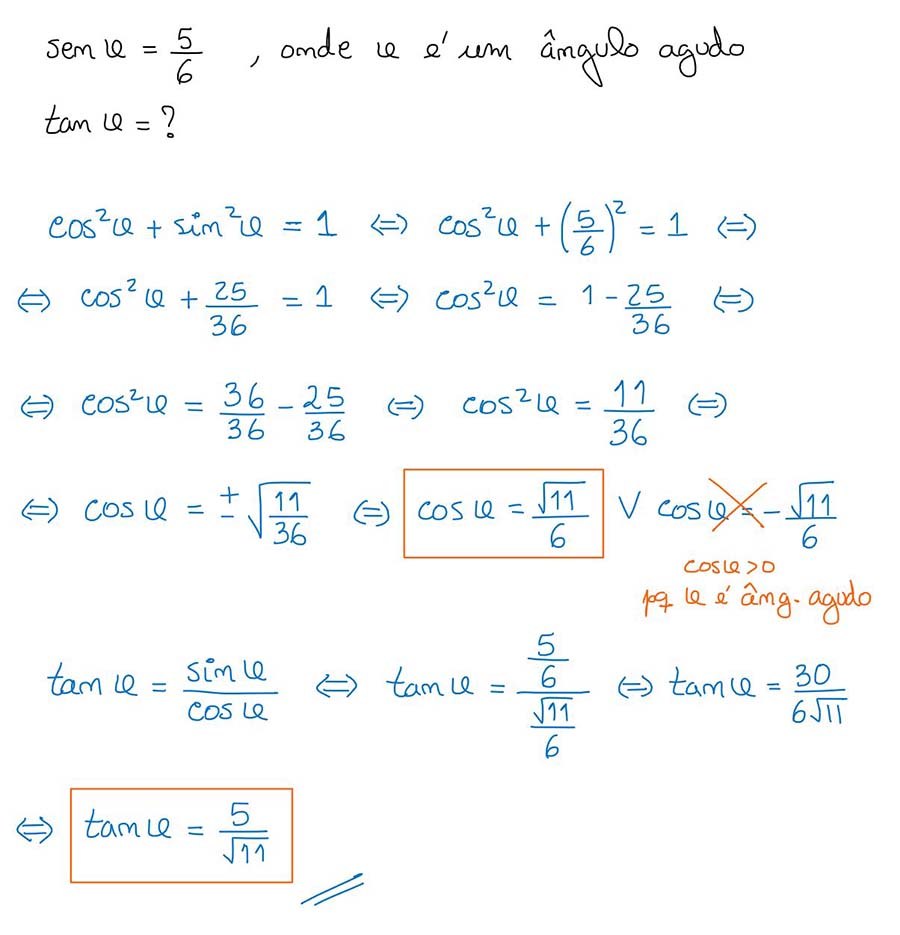 sen φ = 5/6 , onde φ é um ângulo agudo
tan φ = ?
cos²φ + sin²φ = 1 ⇔ cos²φ + (5/6)² = 1 ⇔
⇔ cos²φ + 25/36 = 1 ⇔ cos²φ = 1 - 25/36 ⇔
⇔ cos²φ = 36/36 - 25/36 ⇔ cos²φ = 11/36 ⇔
⇔ cos φ = ± √(11/36) ⇔ cos φ = √11/6 ∨ cos φ = - √11/6
cos φ > 0
pq φ é âng. agudo
tan φ = sin φ/cos φ ⇔ tan φ = (5/6)/(√11/6) ⇔ tan φ = 30/6√11
⇔ tan φ = 5/√11